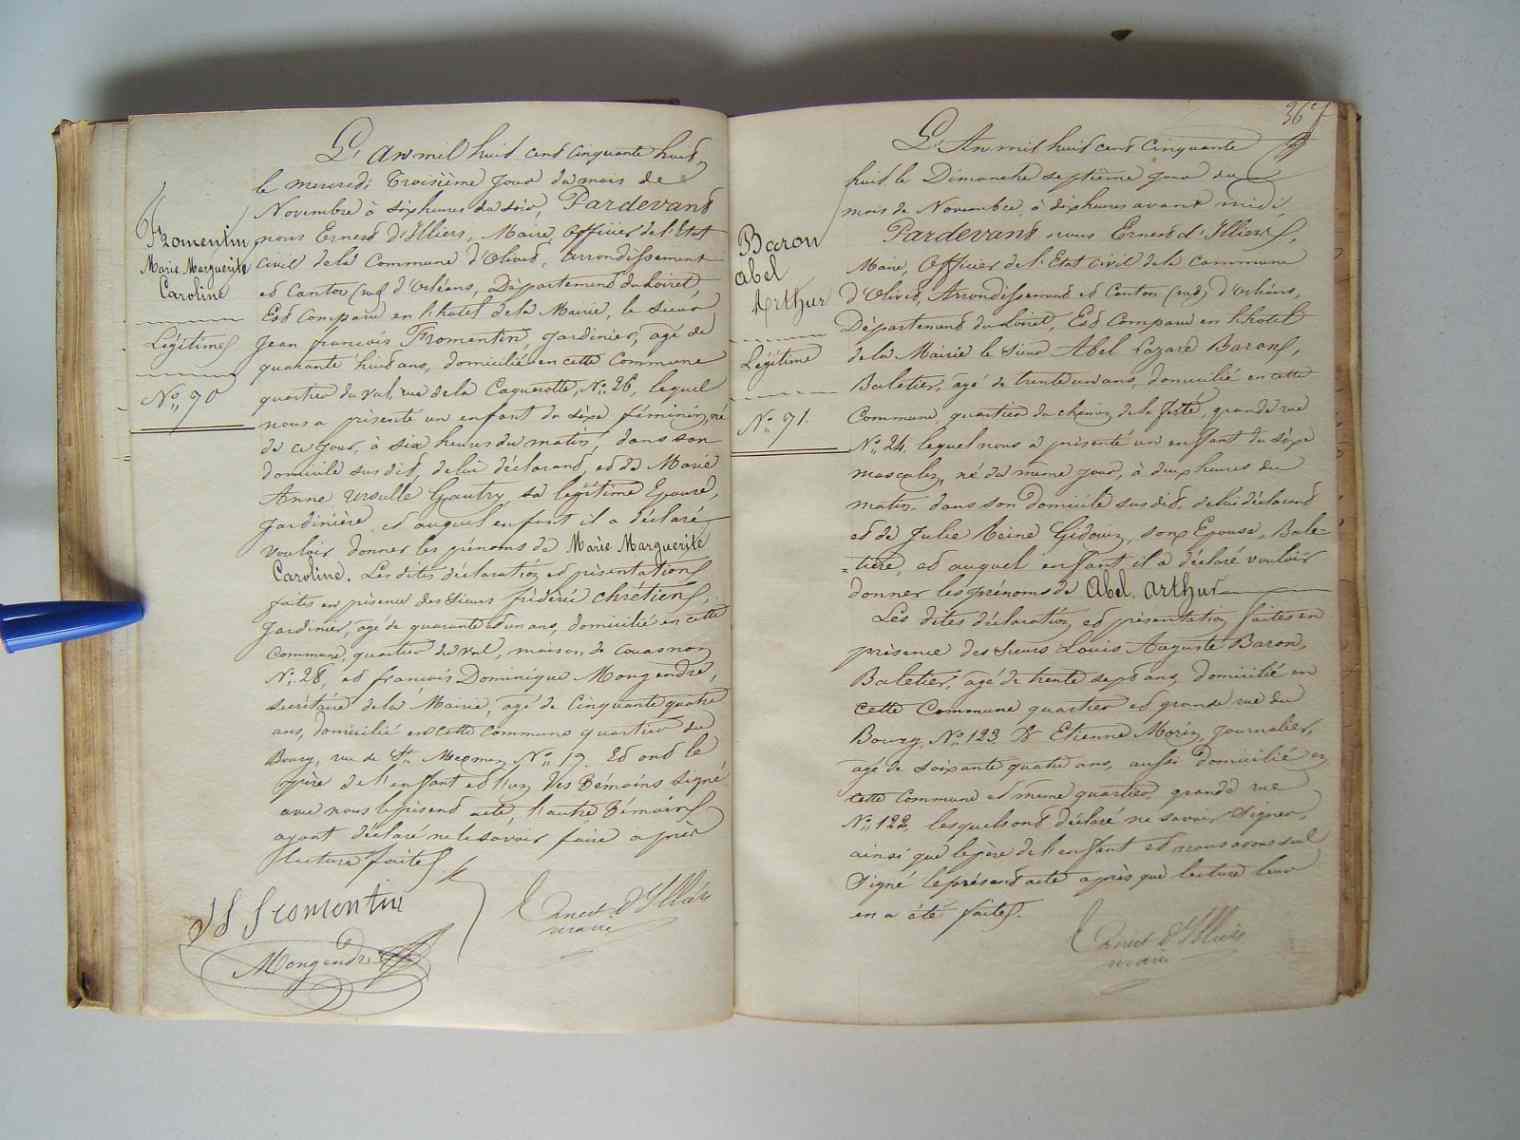 L'An mil huit cent cinquante huit,
le mercredi Troisième jour du mois de
Novembre à six heures du soir, Pardevant
nous Ernest D'Illiers, Maire, Officier de l'Etat
Civil de la Commune d'Olivet, Arrondissement
et Canton (sud) d'Orléans, Département du Loiret,
Est Comparu en l'hôtel de la Mairie, le sieur
Jean françois Fromentin, Jardinier, agé de
quarante huit ans, domicilié en cette Commune
quartier du Val, rue de la Caquerotte, No. 26, lequel
nous a présenté un enfant du sèxe féminin, né
de ce jour, à six heures du matin, dans son
domicile sus dit, de lui déclarant, et de Marie
Anne Ursulle Gautry, sa legitime Epouse,
Jardinière, et auquel enfant il a déclaré
vouloir donner les prénoms de Marie Marguerite
Caroline. Les dites déclaration et présentation
faites en présence des sieurs frédéric Chrétien,
Jardinier, agé de quarante et un ans, domicilié en cette
Commune, quartier du Val, maison de Couasnon
No. 28, et françois Dominique Mongendre,
secrétaire de la Mairie, agé de Cinquante quatre
ans, domicilié en cette Commune quartier du
Bourg, rue de St. Mesmin No. 19. Et ont le
père de l'enfant et l'un des témoins signé
avec nous le présent acte, l'autre témoin
ayant déclaré ne le savoir faire après
lecture faite.
Fromentin
Marie Marguerite
Caroline
Légitime
No. 70
Fromentin
Ernest d'Illiers
maire
Mongendre
36
L'An mil huit cent Cinquante
huit, le Dimanche septième jour du
mois de Novembre, à dix heures avant midi,
Pardevant nous Ernest d'Illiers,
Maire, Officier de l'Etat Civil de la Commune
d'Olivet, Arrondissement et Canton (sud) d'Orléans,
Département du Loiret, Est Comparu en l'hôtel
de la Mairie le sieur Abel Lazare Baron,
Baletier, agé de trente un ans, domicilié en cette
Commune, quartier du chemin de la ferté, grande rue
No. 24, lequel nous a présenté un enfant du sèxe
masculin, né du même jour, à deux heures du
matin, dans son domicile sus dit, de lui déclarant
et de Julie Reine Gidouin, son Epouse, Bale-
=tière, et auquel enfant il a déclaré vouloir
donner les prénoms de Abel, Arthur
Les dites déclaration et présentation faites en
présence des sieurs Louis Auguste Baron,
Baletier, agé de trente sept ans, domicilié en
cette Commune quartier et grande rue du
Bourg, No. 123. & Etienne Morin, journalier,
agé de soixante quatre ans, aussi domicilié en
cette Commune et même quartier, grande rue
No. 122, lesquels ont déclaré ne savoir signer,
ainsi que le père de l'enfant et nous avons seul
signé le présent acte après que lecture leur
en a été faite.
Baron
Abel
Arthur
Légitime
No. 71.
Ernest d'Illiers
maire